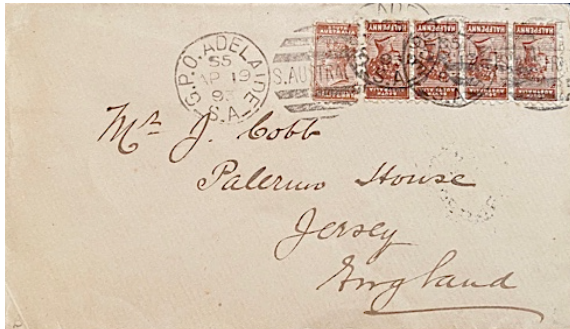 G.P.O. ADELAIDE
S5
AP 19
93
S.A.
S.AUSTRA
HALFPENNY
HALFPENNY
HALFPENNY
HALFPENNY
S.A.
Mr. J. Cobb
Palermo House
Jersey
England